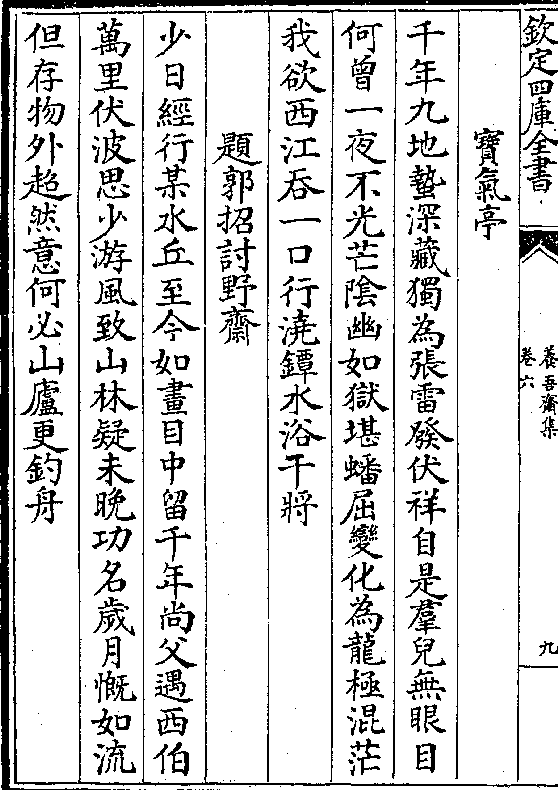 欽定四庫全書
養吾齋集
卷六
九
寶氣亭
千年九地蟄深藏獨為張雷發伏祥自是羣兒無眼目
何曾一夜不光芒陰幽如獄堪蟠屈變化為龍極混茫
我欲西江吞一口行澆鐔水浴干將
題郭招討野齋
少日經行某水丘至今如畫目中留千年尚父遇西伯
萬里伏波思少游風致山林疑未晚功名歲月慨如流
但存物外超然意何必山廬更釣舟